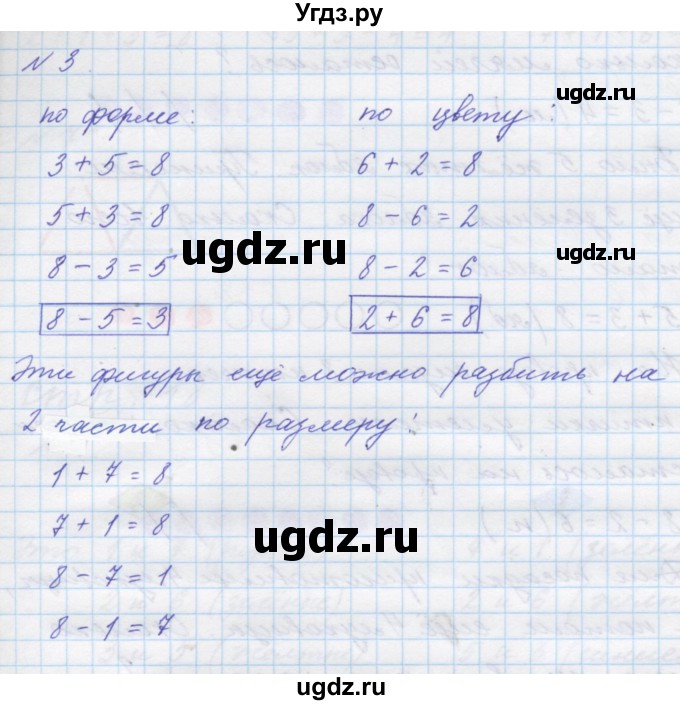 Угдз.ру
№ 3.
по форме: по цвету:
3 + 5 = 8 6 + 2 = 8
5 + 3 = 8 8 - 6 = 2
8 - 3 = 5 8 - 2 = 6
8 - 5 = 3 2 + 6 = 8
Эти фигуры ещё можно разбить на
2 части по размеру:
1 + 7 = 8
7 + 1 = 8
8 - 7 = 1
8 - 1 = 7
ugdz.ru
ugdz.ru
ugdz.ru
ugdz.ru
ugdz.ru
ugdz.ru
ugdz.ru
ugdz.ru